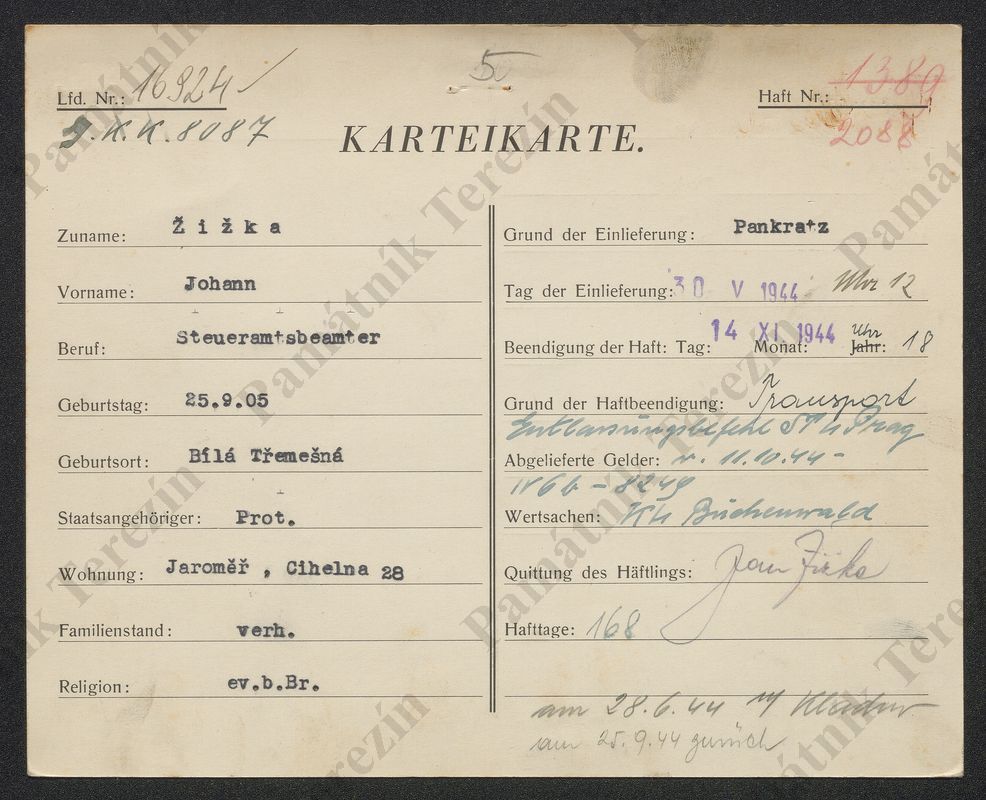 5
Lfd. Nr.: 16924
J.K.K. 8087
Haft Nr.: 1389
2088
KARTEIKARTE.
Zuname: Žižka
Vorname: Johann
Beruf: Steueramtsbeamter
Geburtstag: 25.9.05
Geburtsort: Bílá Třemešná
Staatsangehöriger: Prot.
Wohnung: Jaroměř, Cihelna 28
Familienstand: verh.
Religion: ev.b.Br.
Grund der Einlieferung: Pankratz
Tag der Einlieferung: 30 V 1944 Uhr 12
Beendigung der Haft: Tag: 14 Monat: XI 1944 Uhr Jahr: 18
Grund der Haftbeendigung: Transport
Entlassungsbefehl Prag
Abgelieferte Gelder: v. 11.10.44 -
IV 6 b - 8249
Wertsachen: KL Buchenwald
Quittung des Häftlings: Jan Žižka
Hafttage: 168
am 28.6.44
am 25.9.44 zurück
Památník Terezín